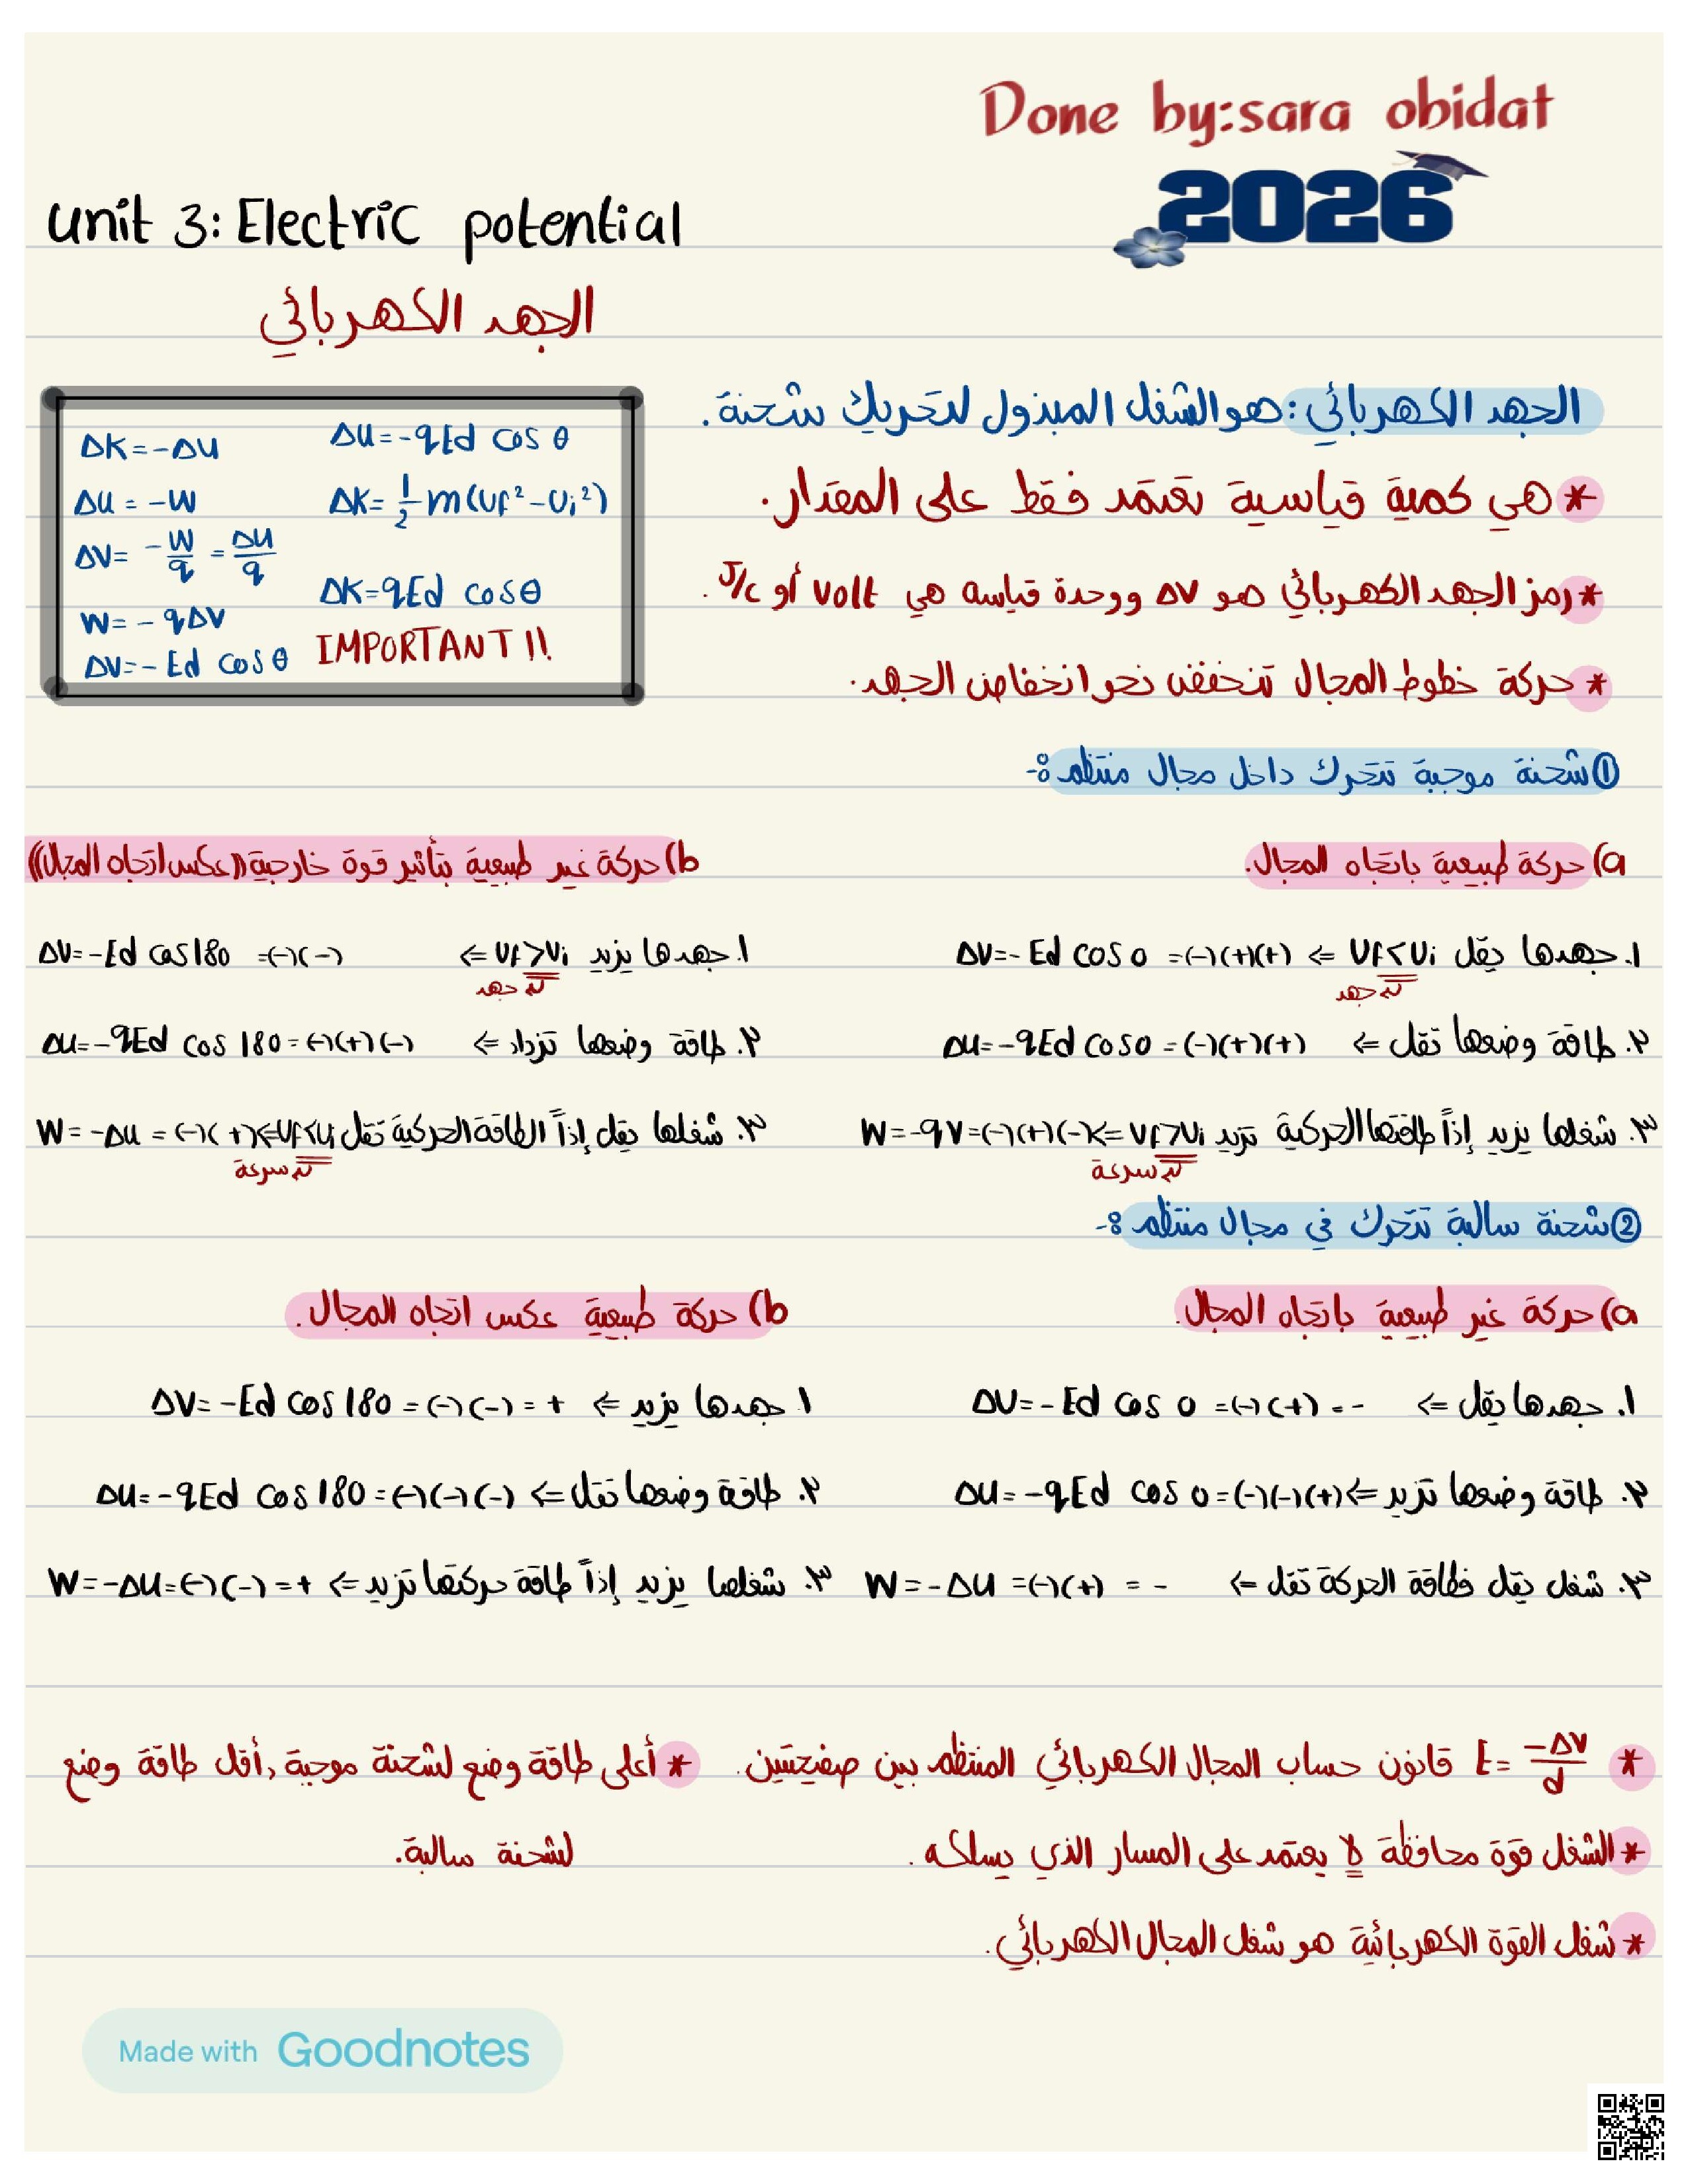 Done by:sara obidat
2026
unit 3: Electric potential
الجهد الكهربائي
ΔK=-ΔU
ΔU=-qEd cos θ
ΔU = -W
ΔK= 1/2 m(vf²-vi²)
ΔV= -W/q = ΔU/q
ΔK=qEd cosθ
W= - qΔV
IMPORTANT !!
ΔV=- Ed cosθ
الجهد الكهربائي: هو الشغل المبذول لتحريك شحنة.
* هي كمية قياسية تعتمد فقط على المقدار.
* رمز الجهد الكهربائي هو ΔV ووحدة قياسه هي volt أو J/C.
* حركة خطوط المجال تنخفض نحو انخفاض الجهد.
① شحنة موجبة تتحرك داخل مجال منتظم :-
a) حركة طبيعية باتجاه المجال.
1. جهدها يقل Vf<Vi ⇐ ΔV=- Ed cos 0 =(-)(+)(+)
جهد
2. طاقة وضعها تقل ⇐ ΔU=-qEd cos0 =(-)(+)(+)
3. شغلها يزيد إذاً طاقتها الحركية تزيد Vf>Vi ⇐ W=-qV=(-)(+)(-)
سرعة
b) حركة غير طبيعية بتأثير قوة خارجية ((عكس اتجاه المجال))
1. جهدها يزيد Vf>Vi ⇐ ΔV=-Ed cos180 =(-)(-)
جهد
2. طاقة وضعها تزداد ⇐ ΔU=-qEd cos 180=(-)(+)(-)
3. شغلها يقل إذاً الطاقة الحركية تقل Vf<Vi ⇐ W= -ΔU = (-)(+)
سرعة
② شحنة سالبة تتحرك في مجال منتظم :-
a) حركة غير طبيعية باتجاه المجال.
1. جهدها يقل ⇐ ΔV=- Ed cos 0 =(-)(+) = -
2. طاقة وضعها تزيد ⇐ ΔU= -qEd cos 0=(-)(-)(+)
3. شغل يقل فطاقة الحركة تقل ⇐ W=-ΔU =(-)(+) = -
b) حركة طبيعية عكس اتجاه المجال.
1 جهدها يزيد ⇐ ΔV=-Ed cos 180 =(-)(-) = +
2. طاقة وضعها تقل ⇐ ΔU=-qEd cos 180=(-)(-)(-)
3. شغلها يزيد إذاً طاقة حركتها تزيد ⇐ W=-ΔU=(-)(-) =+
* E= -ΔV/d قانون حساب المجال الكهربائي المنتظم بين صفيحتين.
* الشغل قوة محافظة لا يعتمد على المسار الذي يسلكه.
* شغل القوة الكهربائية هو شغل المجال الكهربائي.
* أعلى طاقة وضع لشحنة موجبة, أقل طاقة وضع
لشحنة سالبة.
Made with Goodnotes